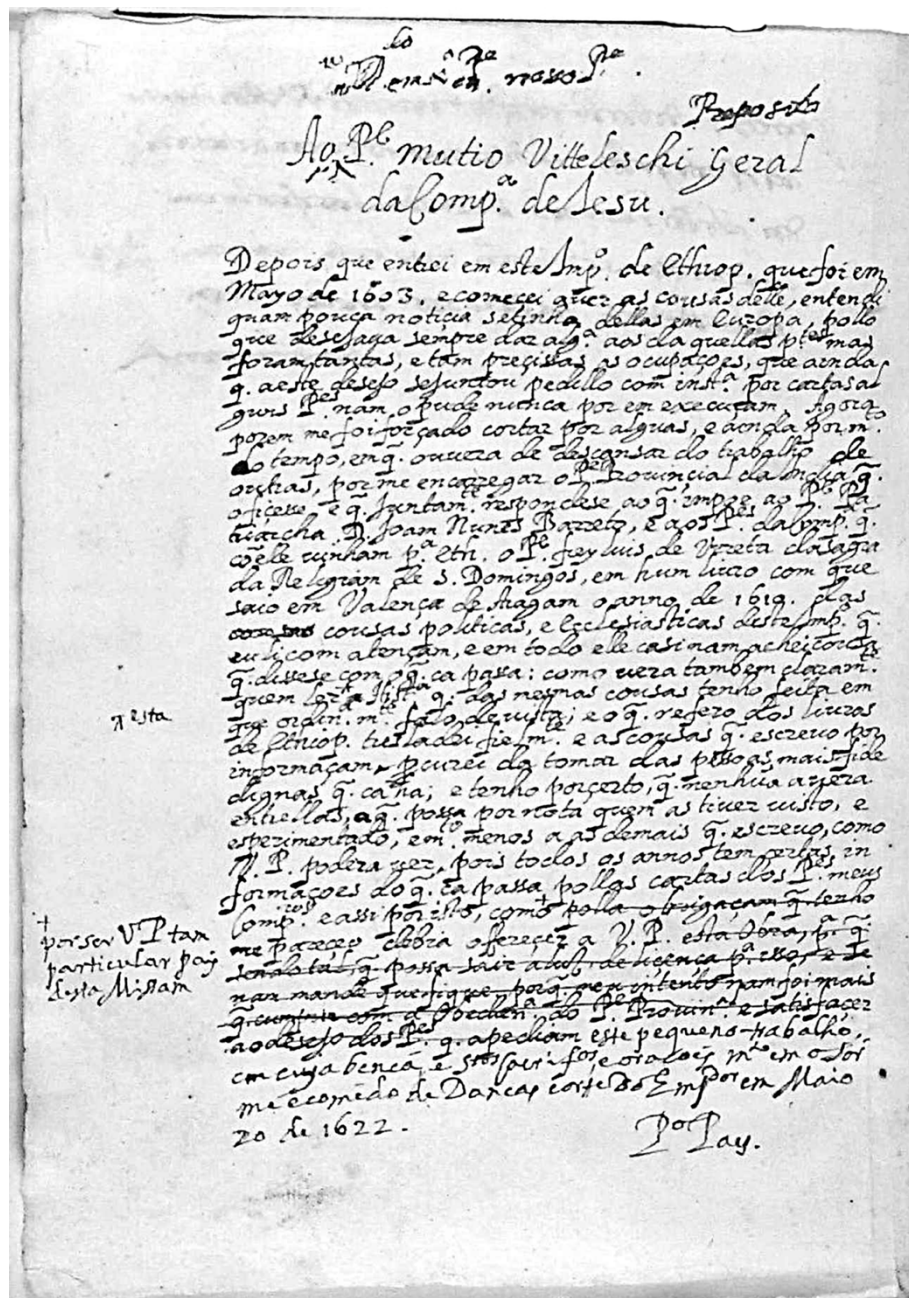 nosso P.e
Preposito
Ao P.e Mutio Vitteleschi Geral
da Comp.a de Iesu.
Depois que entrei em este Imp.o de Ethiop. que foi em
Mayo de 1603. e começei a uer as cousas delle, entendi
quam pouca noticia se tinha dellas em Europa, pollo
que deseiaua sempre dar alg.a aos da quellas p.tes mas
foram tantas, e tam preçissas as ocupações, que ainda
q̃. a este deseio se juntou pedillo com inst.a por cartas al
guns P.es nam o pude nunca por em execuçam. Agora
porem me foi forçado cortar por alguas, e ainda por m.to
do tempo, em q̃. ouuera de descansar do trabalho de
outras, por me encarregar o P.e Prouincial da India q̃.
o fizesse e q̃. juntam.te respondese ao q̃. impoe ao P.e Pa
triarcha D. Joam Nunes Barreto, e aos P.es da Comp.a q̃.
cõ elle uinham p.a Eth. o P.e frey Luis de Vrreta da sagra
da Religiam de S. Domingos, em hum liuro com que
saio em Valença de Aragam o anno de 1610. das
cousas politicas, e Ecclesiasticas deste Imp.o q̃.
eu li com atençam, e em todo elle casi nam achei cousa
q̃. dissese com o q̃. ca passa: como uera tambem claram.te
quem ler a Hist.a q̃. das mesmas cousas tenho feita em
que ordin.m.te falo de uista; e o q̃. refero dos liuros
de Ethiop. tresladei fielm.te e as cousas q̃. escreuo por
informaçam, procurei da tomar das pessoas mais fide
dignas q̃. ca ha; e tenho por çerto, q̃. nenhũa auera
entrellas, a q̃. possa por nota quem as tiuer uisto, e
esperimentado, e m.to menos a as demais q̃. escreuo, como
V. P. podera uer, pois todos os annos tem çertas in
formações do q̃. ca passa pollas cartas dos P.es meus
Comp.ros e assi por isto, como + polla obrigaçam q̃. tenho
me pareçeo deuia ofereçer a V. P. esta Obra, p.a q̃.
sendo tal, q̃. possa sair a luz, de licença p.a isso, e se
nam mande que fique, porq̃. meu intento nam foi mais
q̃. cumprir com a obedien.a do P.e Prouin.al e satisfaçer
ao deseio dos P.es q̃. a pediam este pequeno trabalho,
em cuia bençã, e s.tos sacrif.os, e oraçoẽs m.to em o Sõr
me ẽcomẽdo de Dancas corte do Emp.or em Maio
20 de 1622.
P.o Pay.
esta
+
por ser V P tam
particular pay
desta Missam